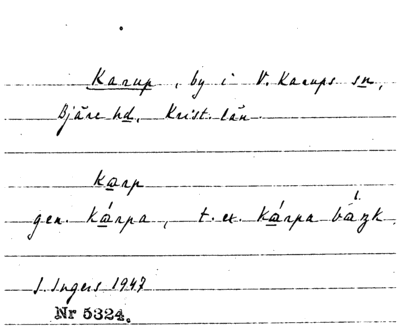 Karup, by i V. Karups sn,
Bjäre hd, Krist. län.
Karp
gen. Kárpa, t. ex. Kárpa
I. Ingers 1947
Nr 5324.